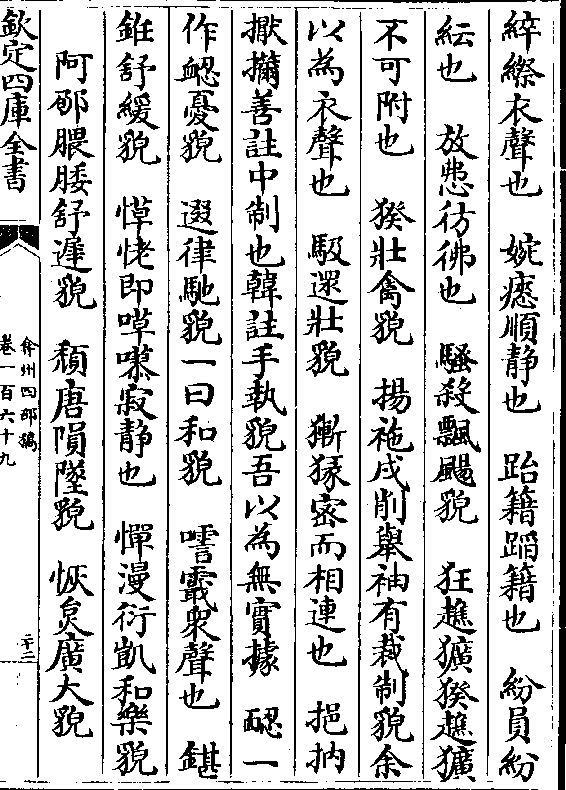 綷縩衣聲也　婉瘱順静也　跆籍蹈籍也　紛員紛
紜也　放彷彿也　騷殺飄颺貌　狂趭獷猤趭獷
不可附也　猤壯禽貌　揚袘戌削舉袖有裁制貌余
以為衣聲也　馺遝壯貌　獑猭密而相連也　挹抐
擫擶善註中制也韓註手執貌吾以為無實據　一
作憂貌　遝律馳貌一曰和貌　霵衆聲也　鍖
銋舒緩貌　愺恅即寂静也　憚漫衍凱和樂貌
阿那腲腇舒遲貌　頹唐隕墜貌　恢炱廣大貌
欽定四庫全書
弇州四部稿
卷一百六十九
二十二